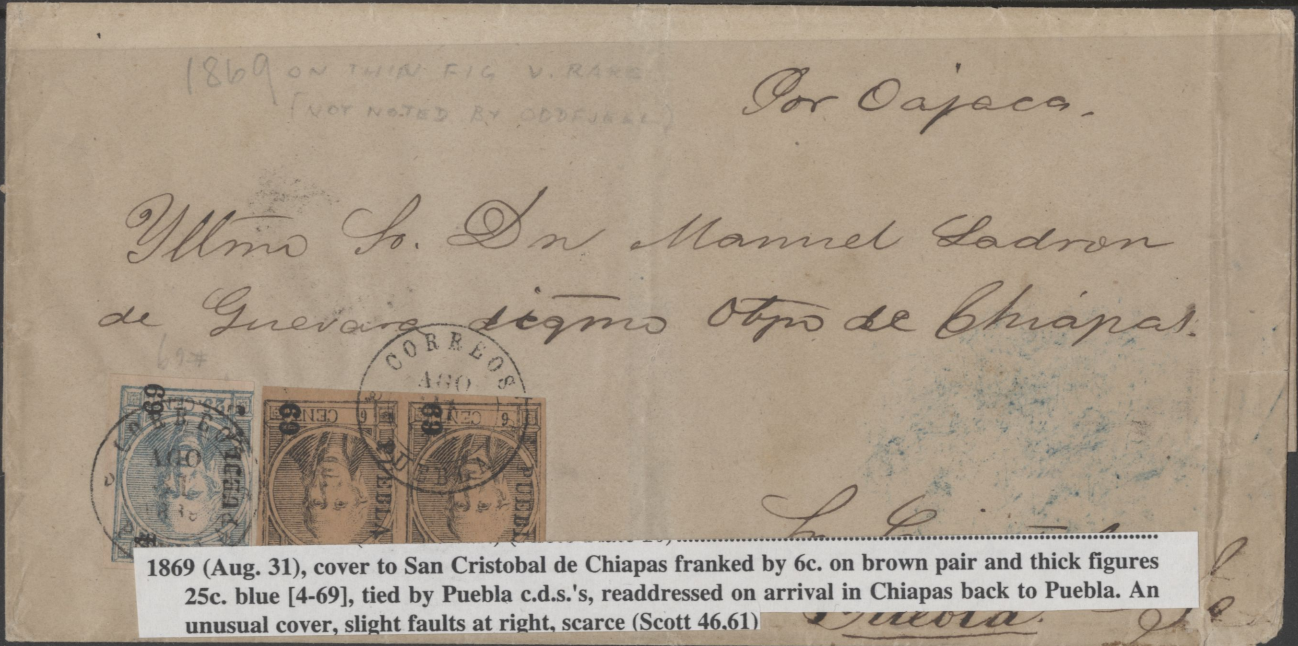 1869 ON THIN FIG V. RARE
(NOT NOTED BY ODDFJELL)
Por Oajaca.
Yltmo Sr. Dn Manuel Ladron
de Guevara digmo Obpo de Chiapas.
69
69
69
CENT
CENT
PUEBLA
PUEBLA
CORREOS
AGO
PUEBLA
CORREOS
AGO
1869 (Aug. 31), cover to San Cristobal de Chiapas franked by 6c. on brown pair and thick figures
25c. blue [4-69], tied by Puebla c.d.s.'s, readdressed on arrival in Chiapas back to Puebla. An
unusual cover, slight faults at right, scarce (Scott 46,61)
Puebla.